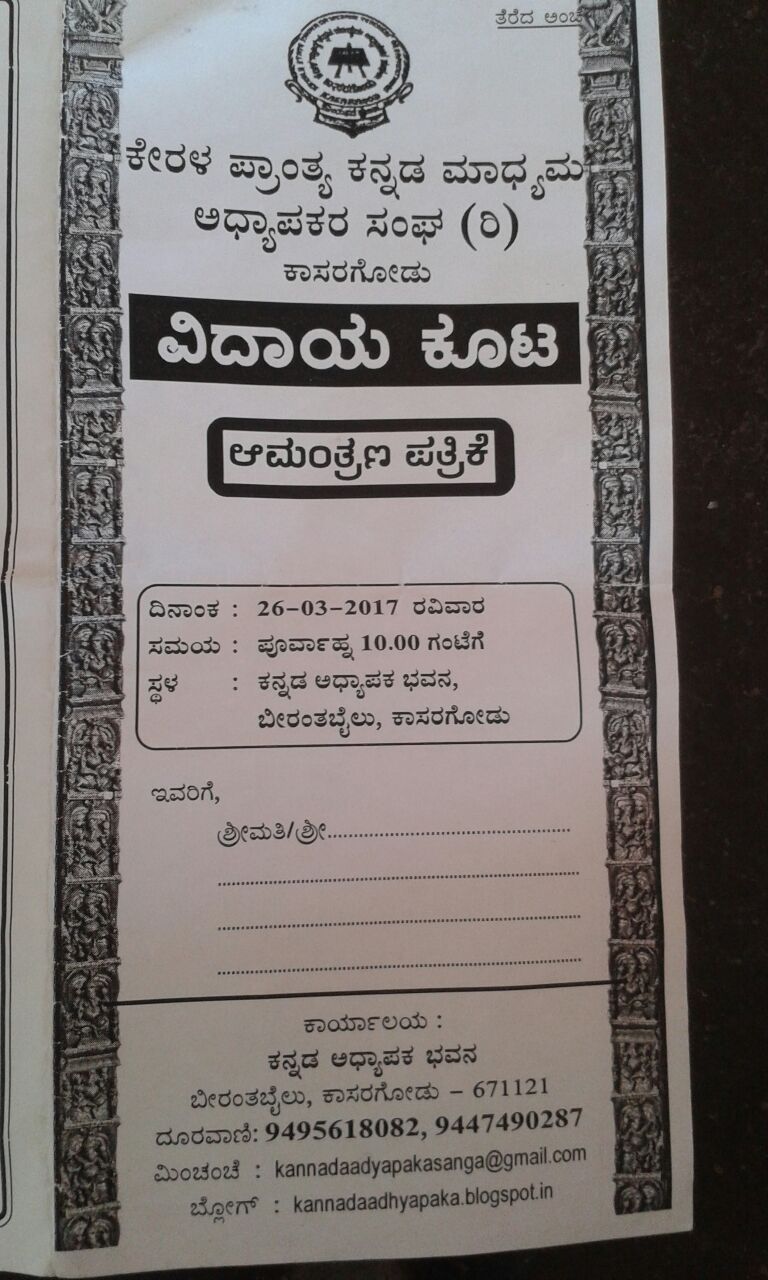 ತೆರೆದ ಅಂಚೆ
ಕೇರಳ ಪ್ರಾಂತ್ಯ ಕನ್ನಡ ಮಾಧ್ಯಮ
ಅಧ್ಯಾಪಕರ ಸಂಘ (ರಿ)
ಕಾಸರಗೋಡು
ವಿದಾಯ ಕೂಟ
ಆಮಂತ್ರಣ ಪತ್ರಿಕೆ
ದಿನಾಂಕ : 26-03-2017 ರವಿವಾರ
ಸಮಯ : ಪೂರ್ವಾಹ್ನ 10.00 ಗಂಟೆಗೆ
ಸ್ಥಳ : ಕನ್ನಡ ಅಧ್ಯಾಪಕ ಭವನ,
ಬೀರಂತಬೈಲು, ಕಾಸರಗೋಡು
ಇವರಿಗೆ,
ಶ್ರೀಮತಿ/ಶ್ರೀ
ಕಾರ್ಯಾಲಯ :
ಕನ್ನಡ ಅಧ್ಯಾಪಕ ಭವನ
ಬೀರಂತಬೈಲು, ಕಾಸರಗೋಡು - 671121
ದೂರವಾಣಿ: 9495618082, 9447490287
ಮಿಂಚಂಚೆ : kannadaadyapakasanga@gmail.com
ಬ್ಲೋಗ್ : kannadaadhyapaka.blogspot.in